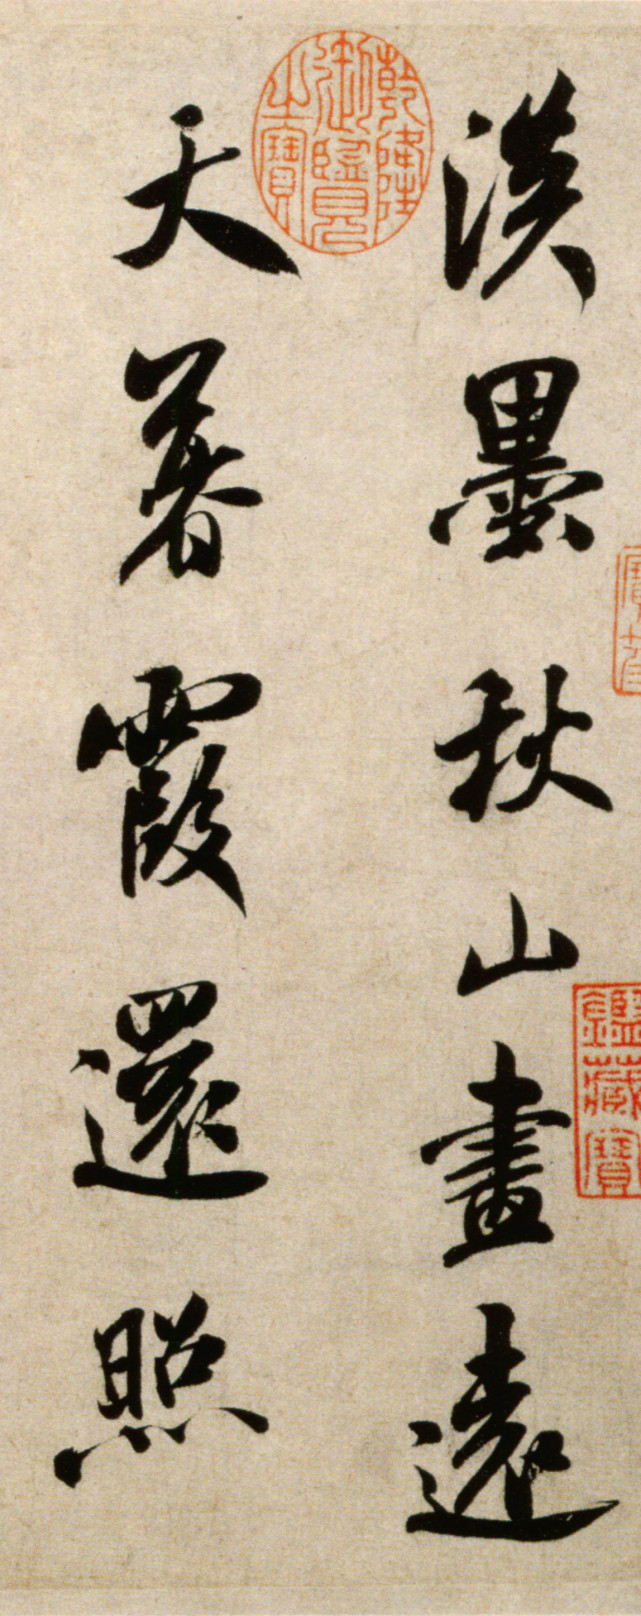 淡墨秋山畫遠
天暮霞還照
乾隆御覽之寶
鑑藏寶